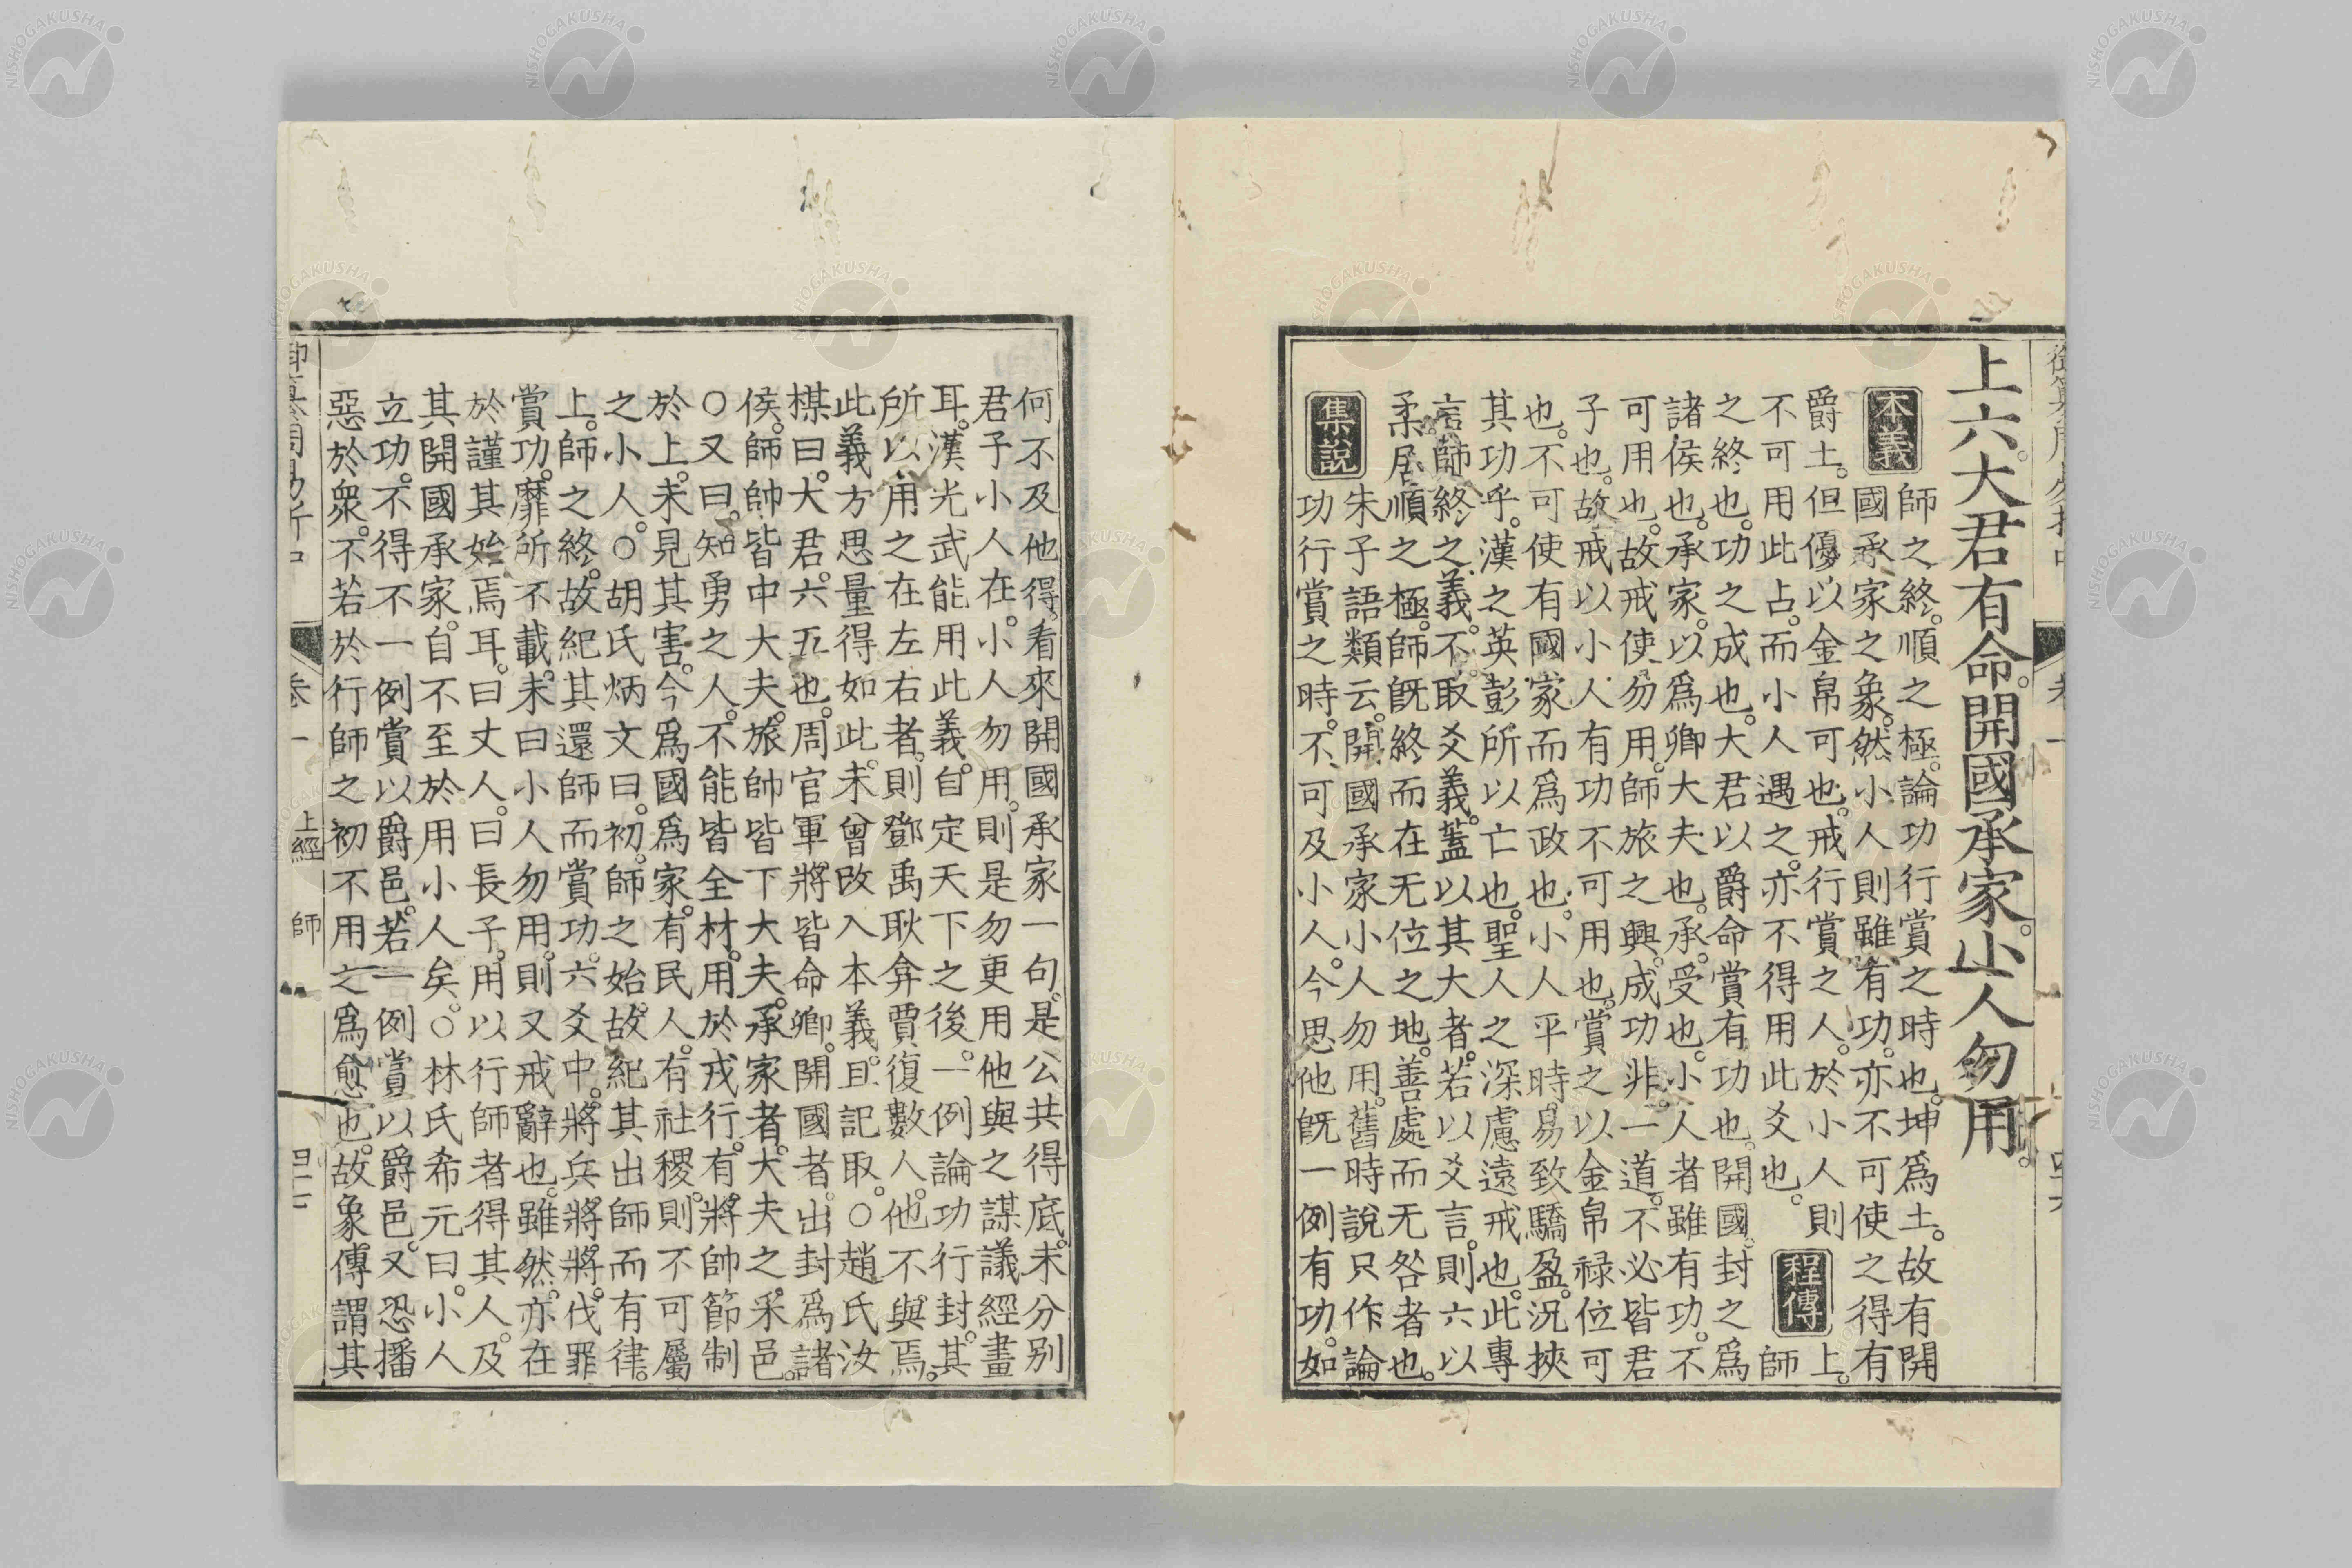 上六。大君有命。開國承家。小人勿用。
本義
師之終。順之極。論功行賞之時也。坤爲土。故有開
國承家之象。然小人則雖有功。亦不可使之得有
爵土。但優以金帛可也。戒行賞之人。於小人則
不可用此占。而小人遇之。亦不得用此爻也。
程傳
上。
師
之終也。功之成也。大君以爵命賞有功也。開國。封之爲
諸侯也。承家。以爲卿大夫也。承。受也。小人者雖有功。不
可用也。故戒使勿用。師旅之興。成功非一道。不必皆君
子也。故戒以小人有功不可用也。賞之以金帛祿位可
也。不可使有國家而爲政也。小人平時易致驕盈。況挾
其功乎。漢之英彭所以亡也。聖人之深慮遠戒也。此專
言師終之義。不取爻義。蓋以其大者。若以爻言。則六以
柔居順之極。師旣終而在无位之地。善處而无咎者也。
集說
朱子語類云。開國承家小人勿用。舊時說只作論
功行賞之時。不可及小人。今思他旣一例有功。如
何不及他得。看來開國承家一句。是公共得底。未分别
君子小人在。小人勿用。則是勿更用他與之謀議經畫
耳。漢光武能用此義。自定天下之後。一例論功行封。其
所以用之在左右者。則鄧禹耿弇賈復數人。他不與焉。
此義方思量得如此。未曾改入本義。且記取。○趙氏汝
楳曰。大君。六五也。周官軍將皆命卿。開國者。出封爲諸
侯。師帥皆中大夫。旅帥皆下大夫。承家者。大夫之采邑。
○又曰。知勇之人。不能皆全材。用於戎行。有將帥節制
於上。未見其害。今爲國爲家。有民人。有社稷。則不可屬
之小人。○胡氏炳文曰。初。師之始。故紀其出師而有律。
上。師之終。故紀其還師而賞功。六爻中。將兵將將。伐罪
賞功。靡所不載。末曰小人勿用。則又戒辭也。雖然。亦在
於謹其始焉耳。曰丈人。曰長子。用以行師者得其人。及
其開國承家。自不至於用小人矣。○林氏希元曰。小人
立功。不得不一例賞以爵邑。若一例賞以爵邑。又恐播
惡於衆。不若於行師之初不用之爲愈也。故象傳謂其
卷一 上經 師
NISHOGAKUSHA